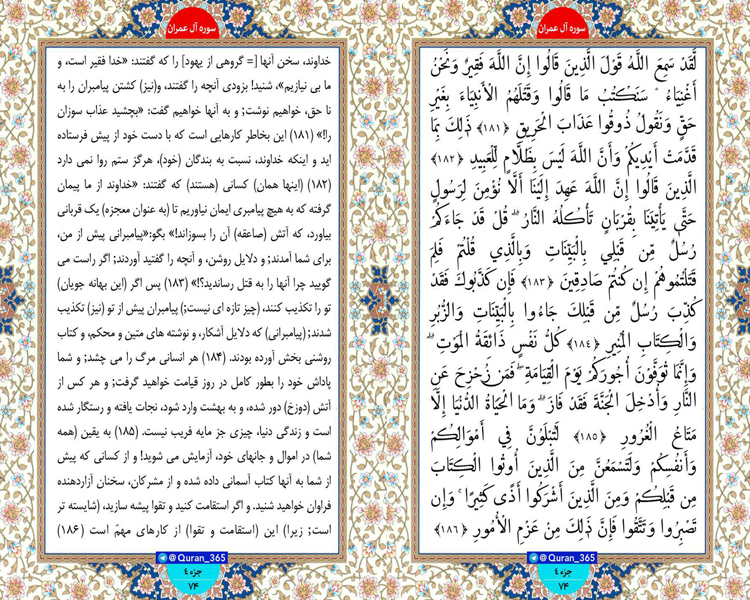 سوره آل عمران
لَّقَدْ سَمِعَ اللَّهُ قَوْلَ الَّذِينَ قَالُوا إِنَّ اللَّهَ فَقِيرٌ وَنَحْنُ
أَغْنِيَاءُ ۘ سَنَكْتُبُ مَا قَالُوا وَقَتْلَهُمُ الْأَنبِيَاءَ بِغَيْرِ
حَقٍّ وَنَقُولُ ذُوقُوا عَذَابَ الْحَرِيقِ ﴿١٨١﴾ ذَٰلِكَ بِمَا
قَدَّمَتْ أَيْدِيكُمْ وَأَنَّ اللَّهَ لَيْسَ بِظَلَّامٍ لِّلْعَبِيدِ ﴿١٨٢﴾
الَّذِينَ قَالُوا إِنَّ اللَّهَ عَهِدَ إِلَيْنَا أَلَّا نُؤْمِنَ لِرَسُولٍ
حَتَّىٰ يَأْتِيَنَا بِقُرْبَانٍ تَأْكُلُهُ النَّارُ ۗ قُلْ قَدْ جَاءَكُمْ
رُسُلٌ مِّن قَبْلِي بِالْبَيِّنَاتِ وَبِالَّذِي قُلْتُمْ فَلِمَ
قَتَلْتُمُوهُمْ إِن كُنتُمْ صَادِقِينَ ﴿١٨٣﴾ فَإِن كَذَّبُوكَ فَقَدْ
كُذِّبَ رُسُلٌ مِّن قَبْلِكَ جَاءُوا بِالْبَيِّنَاتِ وَالزُّبُرِ
وَالْكِتَابِ الْمُنِيرِ ﴿١٨٤﴾ كُلُّ نَفْسٍ ذَائِقَةُ الْمَوْتِ ۗ
وَإِنَّمَا تُوَفَّوْنَ أُجُورَكُمْ يَوْمَ الْقِيَامَةِ ۖ فَمَن زُحْزِحَ عَنِ
النَّارِ وَأُدْخِلَ الْجَنَّةَ فَقَدْ فَازَ ۗ وَمَا الْحَيَاةُ الدُّنْيَا إِلَّا
مَتَاعُ الْغُرُورِ ﴿١٨٥﴾ لَتُبْلَوُنَّ فِي أَمْوَالِكُمْ
وَأَنفُسِكُمْ وَلَتَسْمَعُنَّ مِنَ الَّذِينَ أُوتُوا الْكِتَابَ
مِن قَبْلِكُمْ وَمِنَ الَّذِينَ أَشْرَكُوا أَذًى كَثِيرًا ۚ وَإِن
تَصْبِرُوا وَتَتَّقُوا فَإِنَّ ذَٰلِكَ مِنْ عَزْمِ الْأُمُورِ ﴿١٨٦﴾
@Quran_365
جزء ٤
٧٤
سوره آل عمران
خداوند، سخن آنها [= گروهی از یهود] را که گفتند: «خدا فقیر است، و
ما بی نیازیم»، شنید! بزودی آنچه را گفتند، و(نیز) کشتن پیامبران را به
نا حق، خواهیم نوشت؛ و به آنها خواهیم گفت: «بچشید عذاب سوزان
را!» (۱۸۱) این بخاطر کارهایی است که با دست خود از پیش فرستاده
اید و اینکه خداوند، نسبت به بندگان (خود)، هرگز ستم روا نمی دارد
(۱۸۲) (اینها همان) کسانی (هستند) که گفتند: «خداوند از ما پیمان
گرفته که به هیچ پیامبری ایمان نیاوریم تا (به عنوان معجزه) یک قربانی
بیاورد، که آتش (صاعقه) آن را بسوزاند!» بگو:«پیامبرانی پیش از من،
برای شما آمدند؛ و دلایل روشن، و آنچه را گفتید آوردند؛ اگر راست می
گویید چرا آنها را به قتل رساندید؟!» (۱۸۳) پس اگر (این بهانه جویان)
تو را تکذیب کنند، (چیز تازه ای نیست؛) پیامبران پیش از تو (نیز) تکذیب
شدند؛ (پیامبرانی) که دلایل آشکار، و نوشته های متین و محکم، و کتاب
روشنی بخش آورده بودند. (۱۸۴) هر انسانی مرگ را می چشد؛ و شما
پاداش خود را بطور کامل در روز قیامت خواهید گرفت؛ و هر کس از
آتش (دوزخ) دور شده، و به بهشت وارد شود، نجات یافته و رستگار شده
است و زندگی دنیا، چیزی جز مایه فریب نیست. (۱۸۵) به یقین (همه
شما) در اموال و جانهای خود، آزمایش می شوید! و از کسانی که پیش
از شما به آنها کتاب آسمانی داده شده و از مشرکان، سخنان آزاردهنده
فراوان خواهید شنید. و اگر استقامت کنید و تقوا پیشه سازید، (شایسته تر
است؛ زیرا) این (استقامت و تقوا) از کارهای مهمّ است (۱۸۶)
@Quran_365
جزء ٤
٧٤